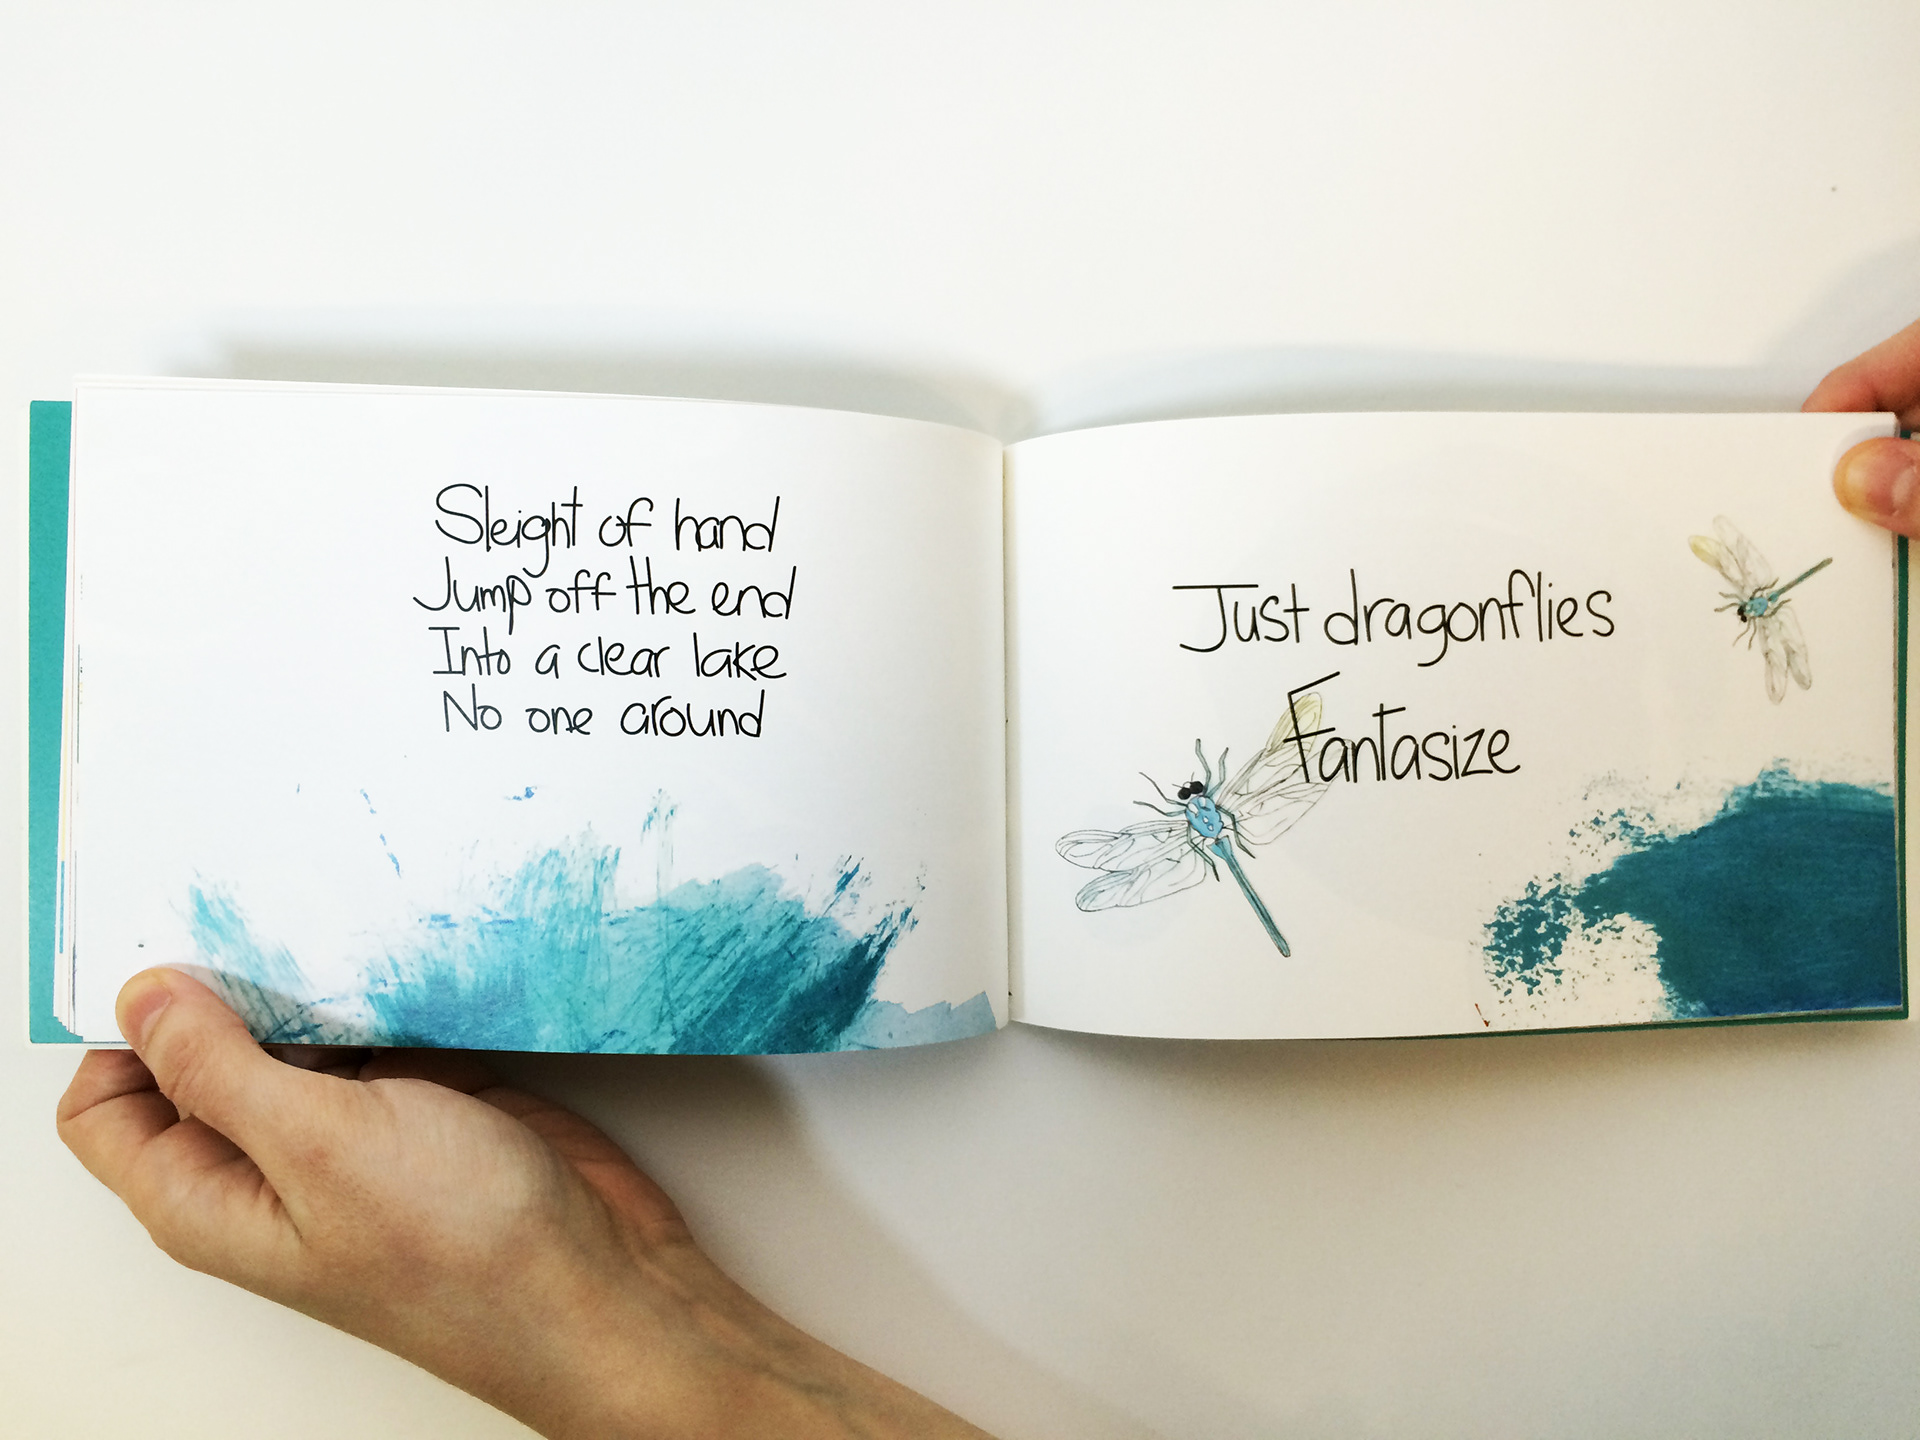 Sleight of hand
Jump off the end
Into a clear lake
No one around
Just dragonflies
Fantasize